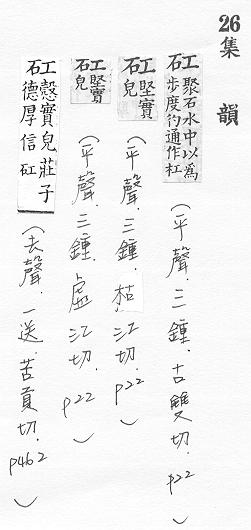 26
集韻
矼 聚石水中以為步度彴通作杠 (平聲.三鍾.古雙切.p22)
矼 堅實皃 (平聲.三鍾.枯江切.p22)
矼 堅實皃 (平聲.三鍾.虛江切.p22)
矼 愨實皃莊子德厚信矼 (去聲.一送.苦貢切.p462)